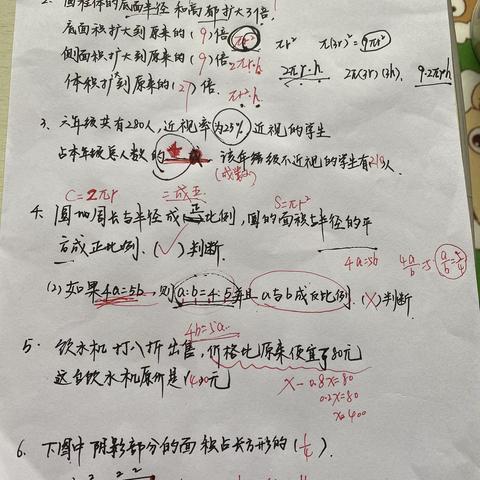 2. 圆柱体的底面半径和高都扩大3倍.
底面积扩大到原来的(9)倍. πr² πr² π(3r)²=9πr²
侧面积扩大到原来的(9)倍. 2πr·h 2πr·h 2π(3r)(3h). 9·2πrh
体积扩大到原来的(27)倍. πr²·h
3. 六年级共有280人,近视率为25%近视的学生
占本年级总人数的 该年级不近视的学生有210人.
(成数)
C=2πr 二成五 S=πr²
4. 圆的周长与半径成正比例,圆的面积与半径的平
方成正比例.(✓)判断.
4a=5b 4a/b=5 a/b=5/4
(2)如果4a=5b,则a:b=4:5并且a与b成反比例.(X)判断
4b=5a.
5. 饮水机打八折出售,价格比原来便宜了80元
这台饮水机原价是(400)元
x-0.8x=80
0.2x=80
x=400
6. 下图中阴影部分的面积占长方形的( ).